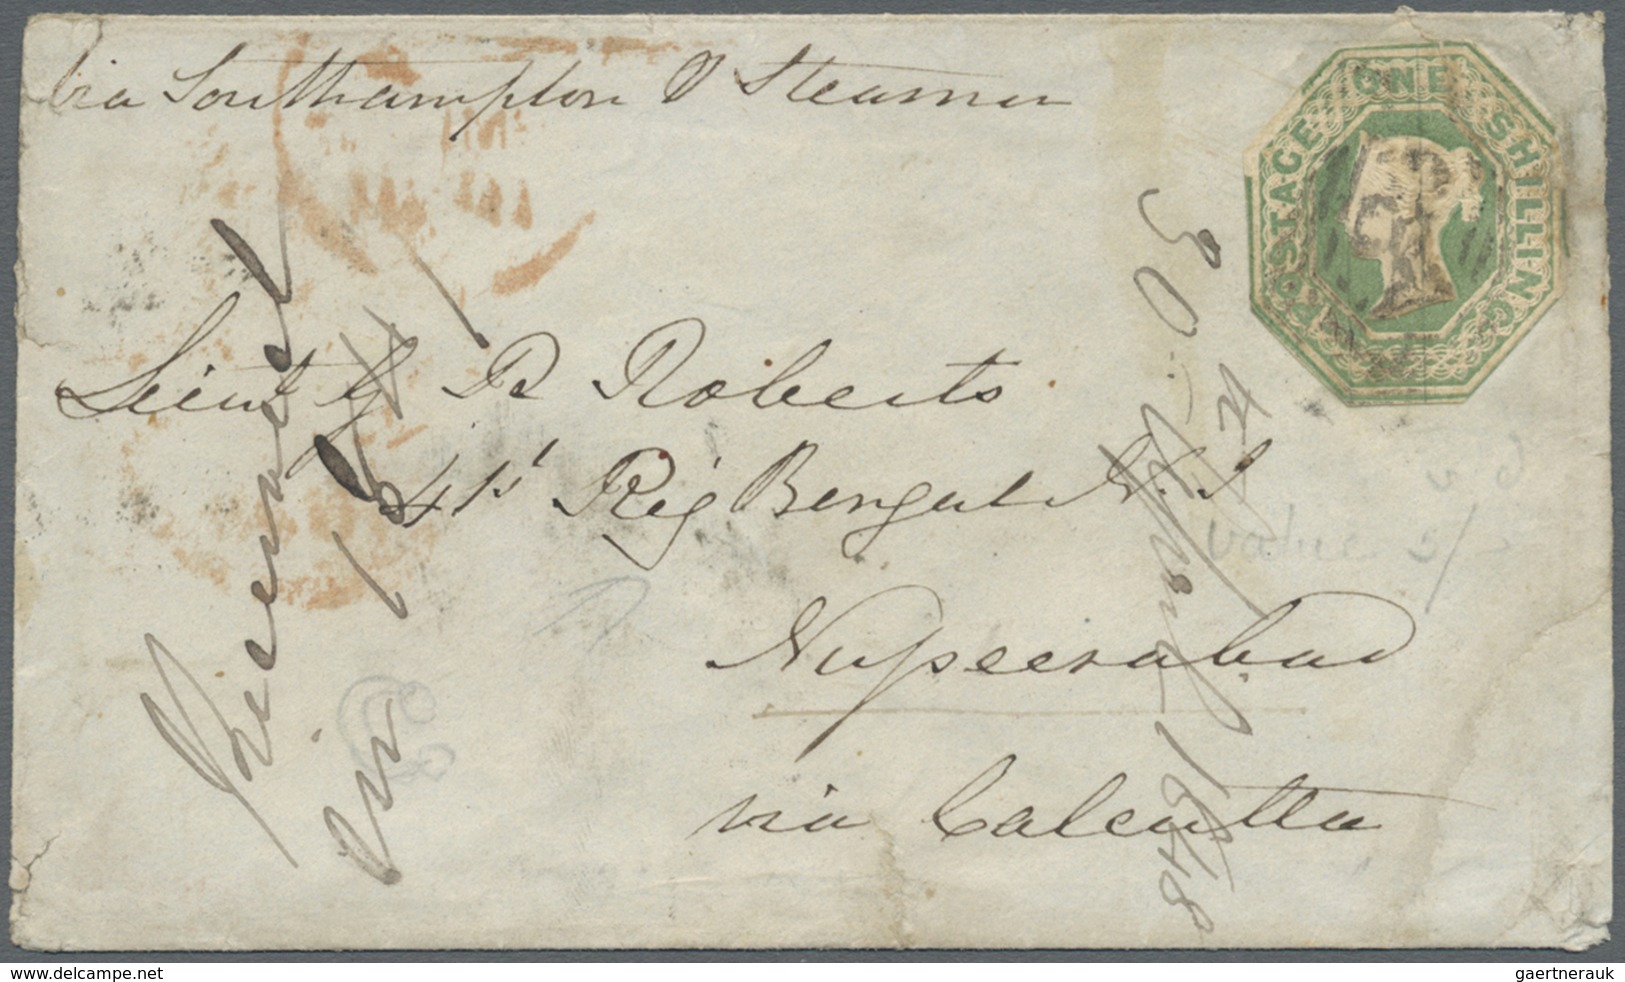 via Southampton & Steamer
POSTAGE ONE SHILLING
Lieut G R Roberts
41st Reg Bengal N. I
Nuseerabad
via Calcutta
Received
value 5/-
1848
gaertnerauk